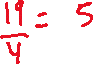 19/4 = 5